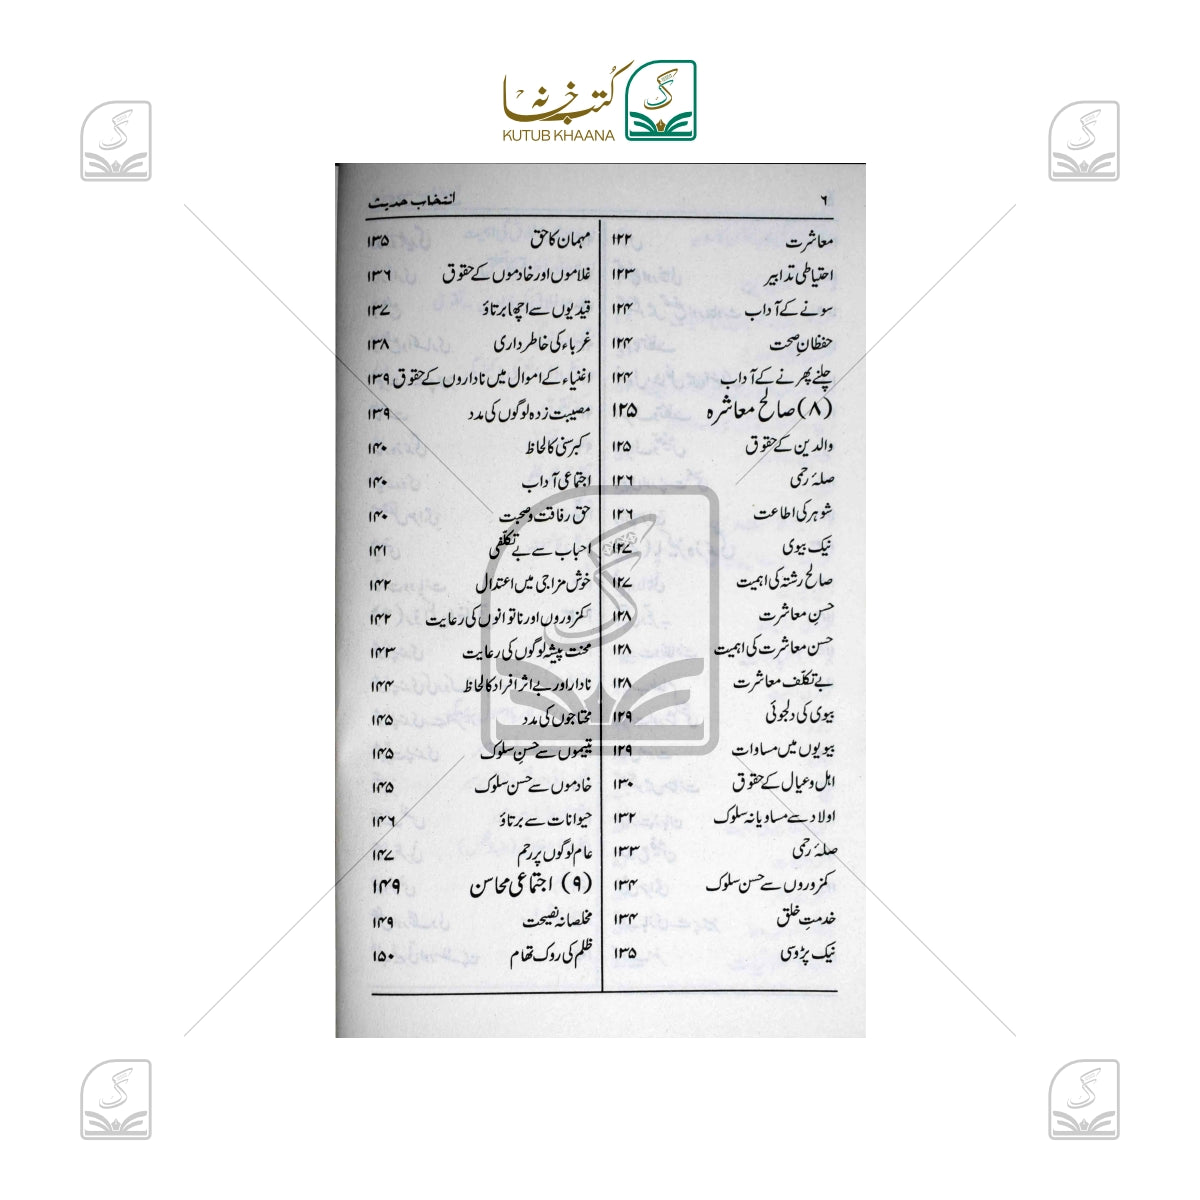 کتب خانہ
KUTUB KHAANA
۶
انتخاب حدیث
معاشرت ۱۲۲
احتیاطی تدابیر ۱۲۳
سونے کے آداب ۱۲۴
حفظانِ صحت ۱۲۴
چلنے پھرنے کے آداب ۱۲۴
(۸) صالح معاشرہ ۱۲۵
والدین کے حقوق ۱۲۵
صلۂ رحمی ۱۲۶
شوہر کی اطاعت ۱۲۶
نیک بیوی ۱۲۷
صالح رشتہ کی اہمیت ۱۲۷
حسنِ معاشرت ۱۲۸
حسن معاشرت کی اہمیت ۱۲۸
بے تکلّف معاشرت ۱۲۸
بیوی کی دلجوئی ۱۲۹
بیویوں میں مساوات ۱۲۹
اہل و عیال کے حقوق ۱۳۰
اولاد سے مساویانہ سلوک ۱۳۲
صلۂ رحمی ۱۳۳
کمزوروں سے حسن سلوک ۱۳۴
خدمتِ خلق ۱۳۴
نیک پڑوسی ۱۳۵
مہمان کا حق ۱۳۵
غلاموں اور خادموں کے حقوق ۱۳۶
قیدیوں سے اچھا برتاؤ ۱۳۷
غرباء کی خاطرداری ۱۳۸
اغنیاء کے اموال میں ناداروں کے حقوق ۱۳۹
مصیبت زدہ لوگوں کی مدد ۱۳۹
کبر سنی کا لحاظ ۱۴۰
اجتماعی آداب ۱۴۰
حق رفاقت و صحبت ۱۴۰
احباب سے بے تکلّفی ۱۴۱
خوش مزاجی میں اعتدال ۱۴۲
کمزوروں اور ناتوانوں کی رعایت ۱۴۲
محنت پیشہ لوگوں کی رعایت ۱۴۳
نادار اور بے اثر افراد کا لحاظ ۱۴۴
محتاجوں کی مدد ۱۴۵
یتیموں سے حسنِ سلوک ۱۴۵
خادموں سے حسن سلوک ۱۴۵
حیوانات سے برتاؤ ۱۴۶
عام لوگوں پر رحم ۱۴۷
(۹) اجتماعی محاسن ۱۴۹
مخلصانہ نصیحت ۱۴۹
ظلم کی روک تھام ۱۵۰